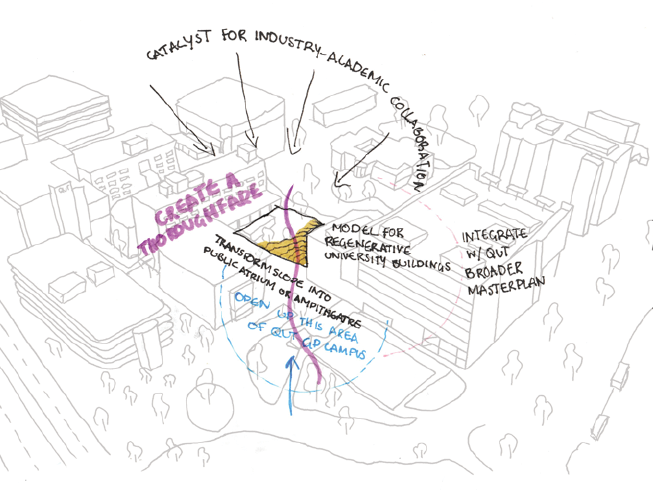 CATALYST FOR INDUSTRY-ACADEMIC COLLABORATION
CREATE A
THOROUGHFARE
MODEL FOR
REGENERATIVE
UNIVERSITY BUILDINGS
INTEGRATE
W/ QUT
BROADER
MASTERPLAN
TRANSFORM SLOPE INTO
PUBLIC ATRIUM OR AMPITHEATRE
OPEN UP THIS AREA
OF QUT GP CAMPUS